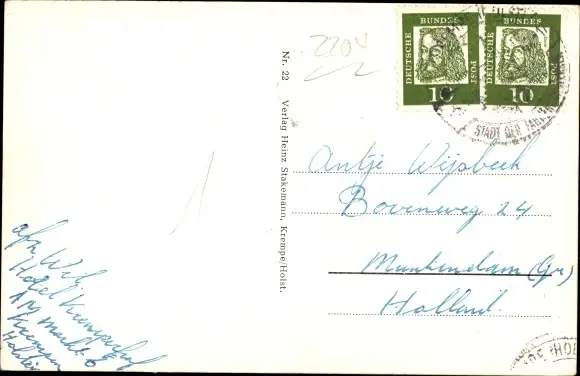 2204
DEUTSCHE BUNDES POST 10
DEUTSCHE BUNDES POST 10
STADT DER
Nr. 22 Verlag Heinz Stakemann, Krempe/Holst.
Antje Wijsbeek
Bovenweg 24
Holland.
Hotel
Am Markt 6
Krempe
Holstein